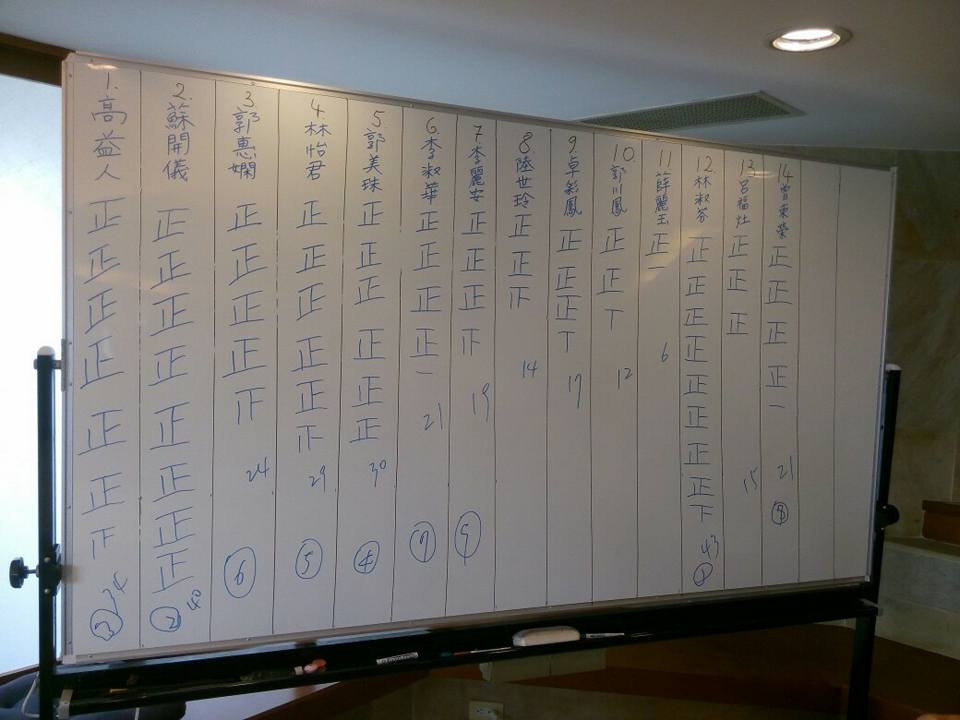 1. 高益人 正正正正正正下 34 ③
2. 蘇開儀 正正正正正正正正 40 ②
3. 郭惠嫻 正正正正下 24 ⑥
4. 林怡君 正正正正正下 29 ⑤
5. 郭美珠 正正正正正正 30 ④
6. 李淑華 正正正正一 21 ⑦
7. 李麗安 正正正下 19 ⑨
8 陸世玲 正正下 14
9. 卓彩鳳 正正正丅 17
10. 郭川鳳 正正丅 12
11 薛麗玉 正一 6
12. 林淑芬 正正正正正正正正下 43 ①
13 呂福灶 正正正 15
14 曾東榮 正正正正一 21 ⑧